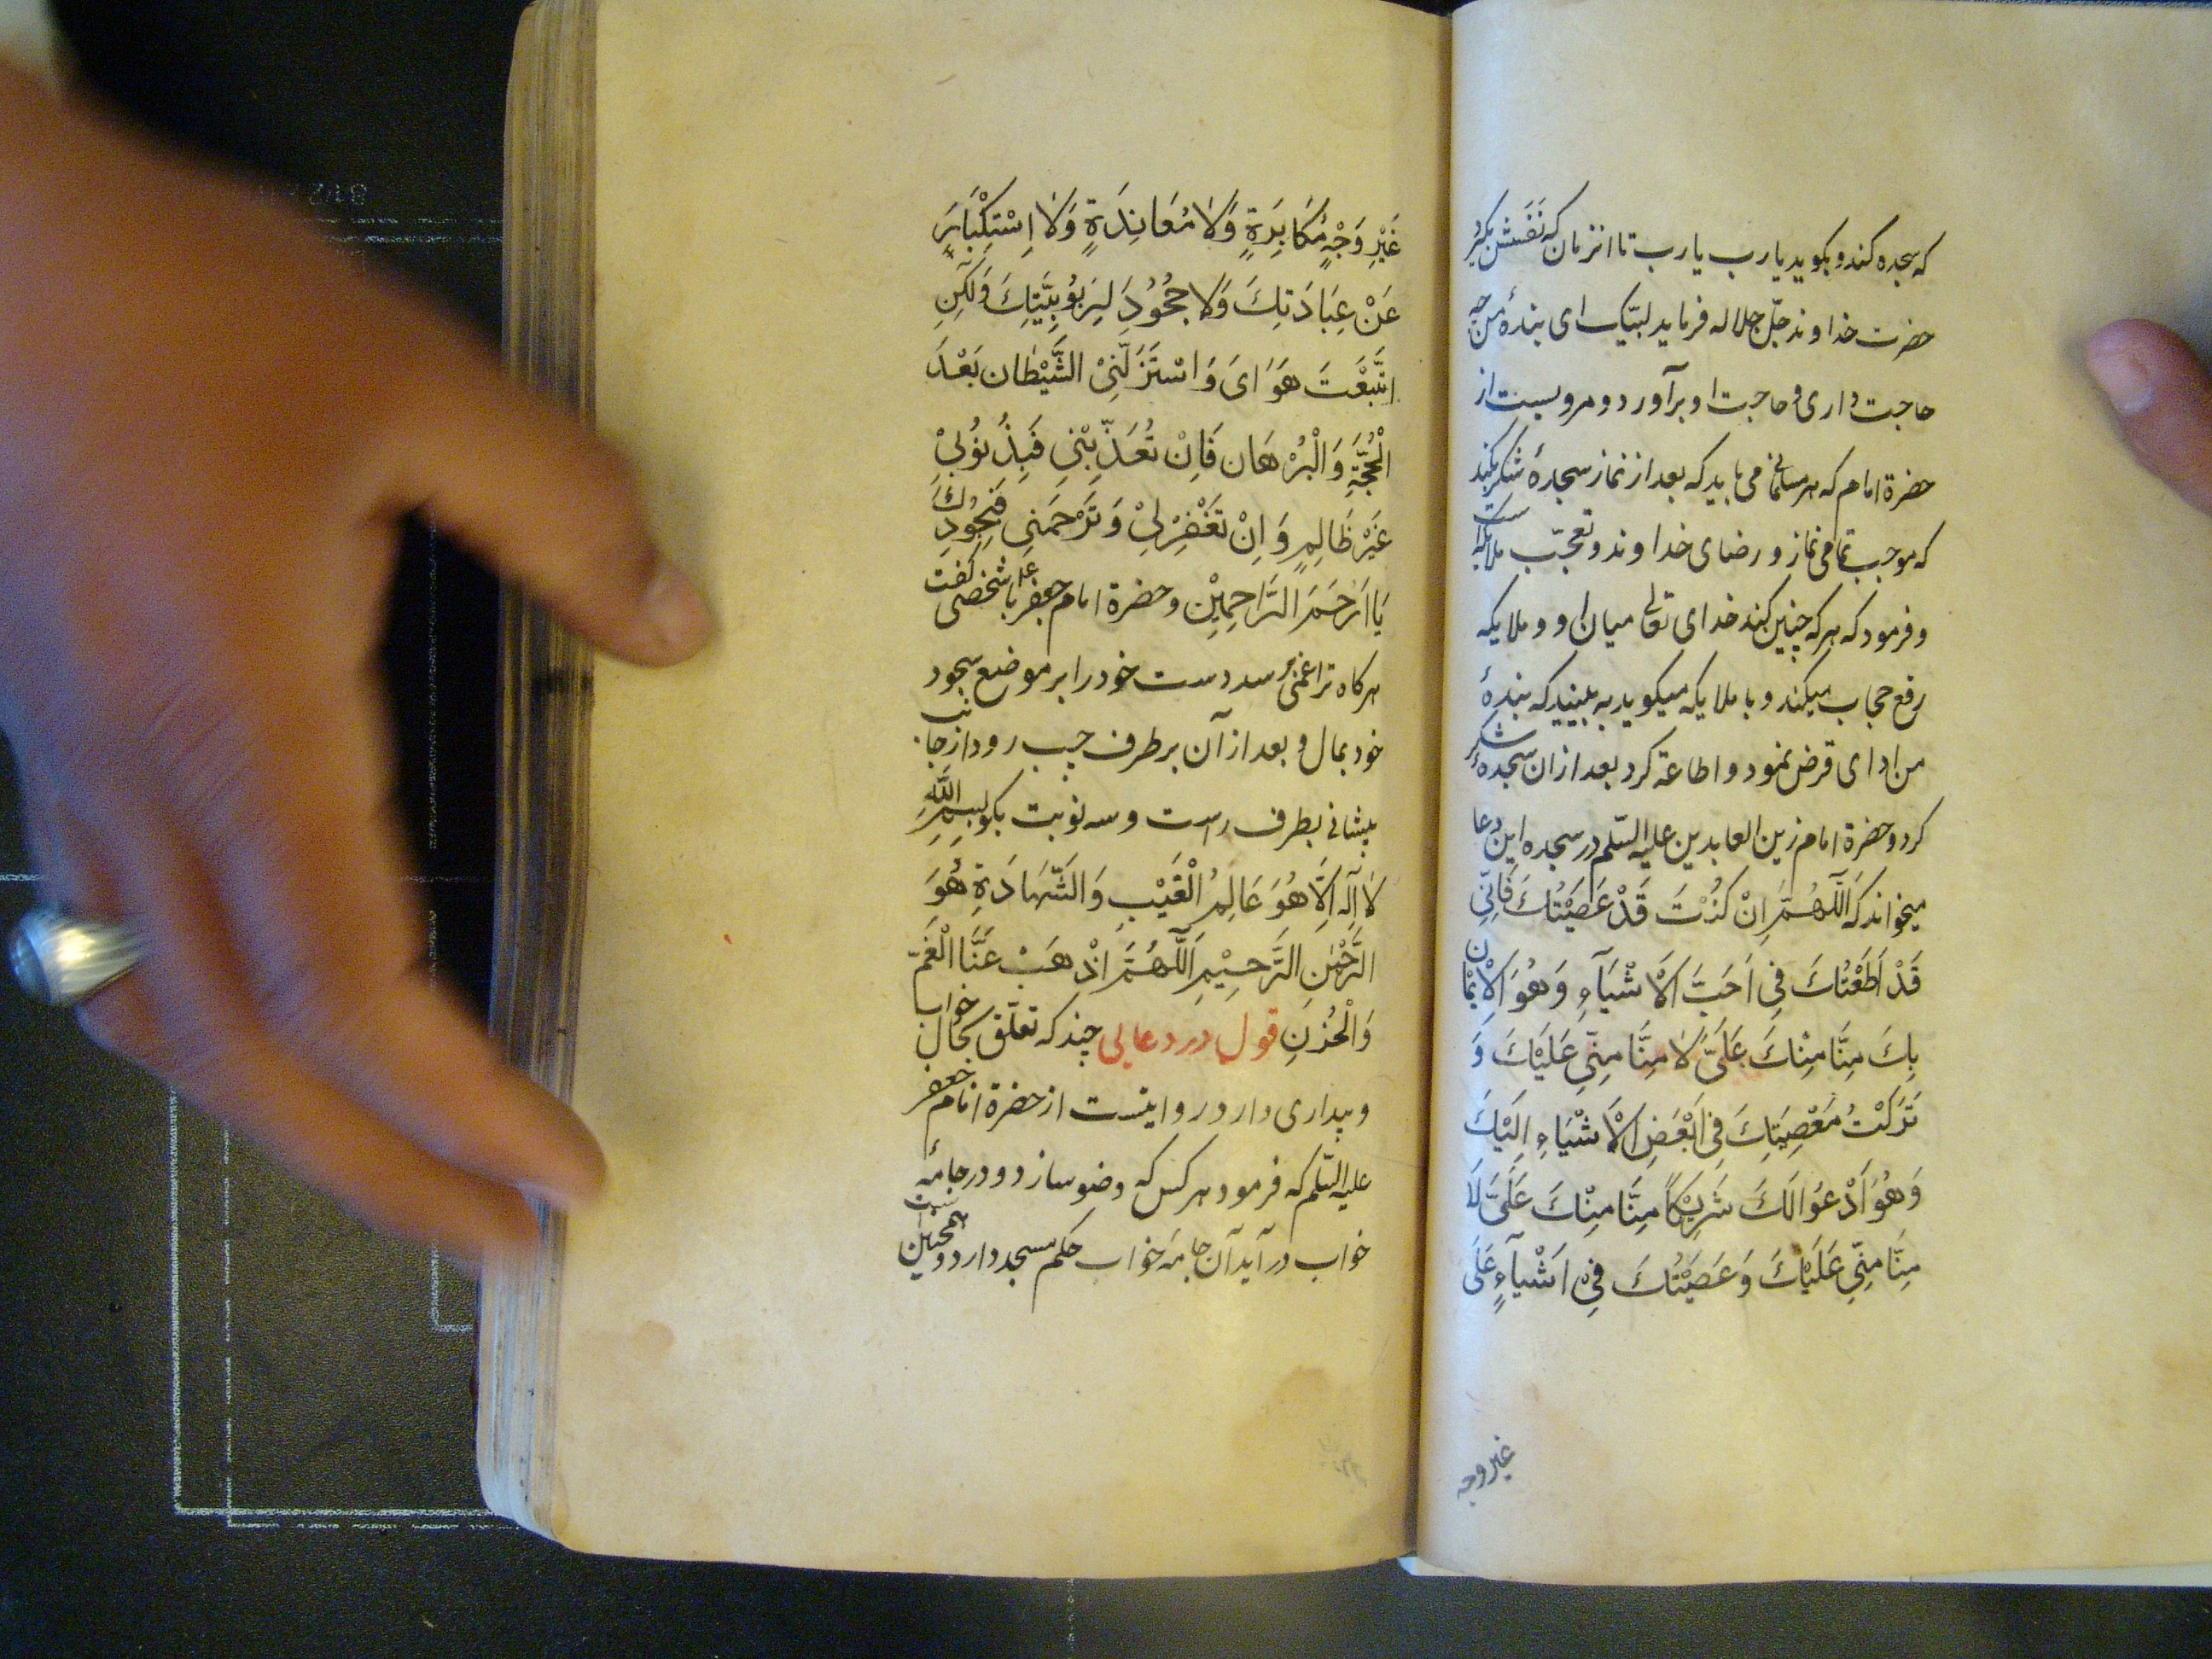 که سجده کند و بکوید یا رب یا رب تا انزمان که نَفَسَش بکیرد
حضرت خداوند جلّ جلاله فرماید لبّیک ای بندهٔ من چه
حاجت داری و حاجت او برآورد و مرویست از
حضرة امام که هر مسلمانی می باید که بعد از نماز سجدهٔ شکر بکند
که موجب تمامی نماز و رضای خداوند و تعجّب ملایکه است
و فرمود که هر که چنین کند خدای تعالی میان او و ملایکه
رفع حجاب میکند و با ملایکه میکوید به بینید که بندهٔ
من ادای قرض نمود و اطاعة کرد بعد از ان سجدهٔ شکر
کرد و حضرة امام زین العابدین علیه السّلم در سجده این دعا
میخواند که اَللّهُمَّ اِنْ كُنْتَ قَدْ عَصَيْتُكَ فَاِنّي
قَدْ اَطَعْتُكَ فِى اَحَبَّ الْاَشْيَآءِ وَهُوَ الْاِيْمَان
بِكَ مِنَّا مِنْكَ عَلَىَّ لَا مِنَّا مِنّي عَلَيْكَ وَ
تَرَكْتُ مَعْصِيَتِكَ فِى اَبْغَضِ الْاَشْيَاءِ اِلَيْكَ
وَهُوَ اَدْعُوالَكَ شَرِيْكًا مِنَّا مِنْكَ عَلَىَّ لَا
مِنَّا مِنّي عَلَيْكَ وَعَصَيْتُكَ فِىْ اَشْيآءٍ عَلَى
غیر وجه
غَيْرِ وَجْهٍ مُكَابِرَةٍ وَلَا مُعَانِدَةٍ وَلَا اِسْتِكْبَارٍ
عَنْ عِبَادَتِكَ وَلَا جُحُوْدَ لِرَبُوْبِيَّتِكَ وَلٰكِنِ
اتَّبَعْتَ هَوَاىَ وَاسْتَزَلَّنِىْ الشَّيْطَان بَعْدَ
الْحُجَّةِ وَالْبُرْهَان فَاِنْ تُعَذّبْنِى فَبِذُنُوْبِىْ
غَيْرَ ظَالِمٍ وَاِنْ تَغْفِرْلِىْ وَتَرْحَمْنِى فَبِجُوْدِكَ
يَا اَرْحَمَ الرَّاحِمِيْنَ و حضرة امام جعفر ع با شخصی کفت
هر کاه ترا غمی رسد دست خود را بر موضع سجود
خود بمال و بعد از آن بر طرف چپ رو و از جانب
پیشانی بطرف راست و سه نوبت بکو بِسْمِ اللّٰهِ
لَا اِلٰهَ اِلَّا هُوَ عَالِمُ الْغَيْبِ وَالشَّهَادَةِ هُوَ
الرَّحْمٰنِ الرَّحِيْمِ اَللّٰهُمَّ اذْهَبْ عَنَّا الْغَمّ
وَالْحُزْنِ قول در دعایی چند که تعلّق بحال خواب
و بیداری دارد روایتست از حضرة امام جعفر
علیه السّلم که فرمود هر کس که وضو سازد و در جامهٔ
خواب در آید آن جامهٔ خواب حکم مسجد دارد و همچنین